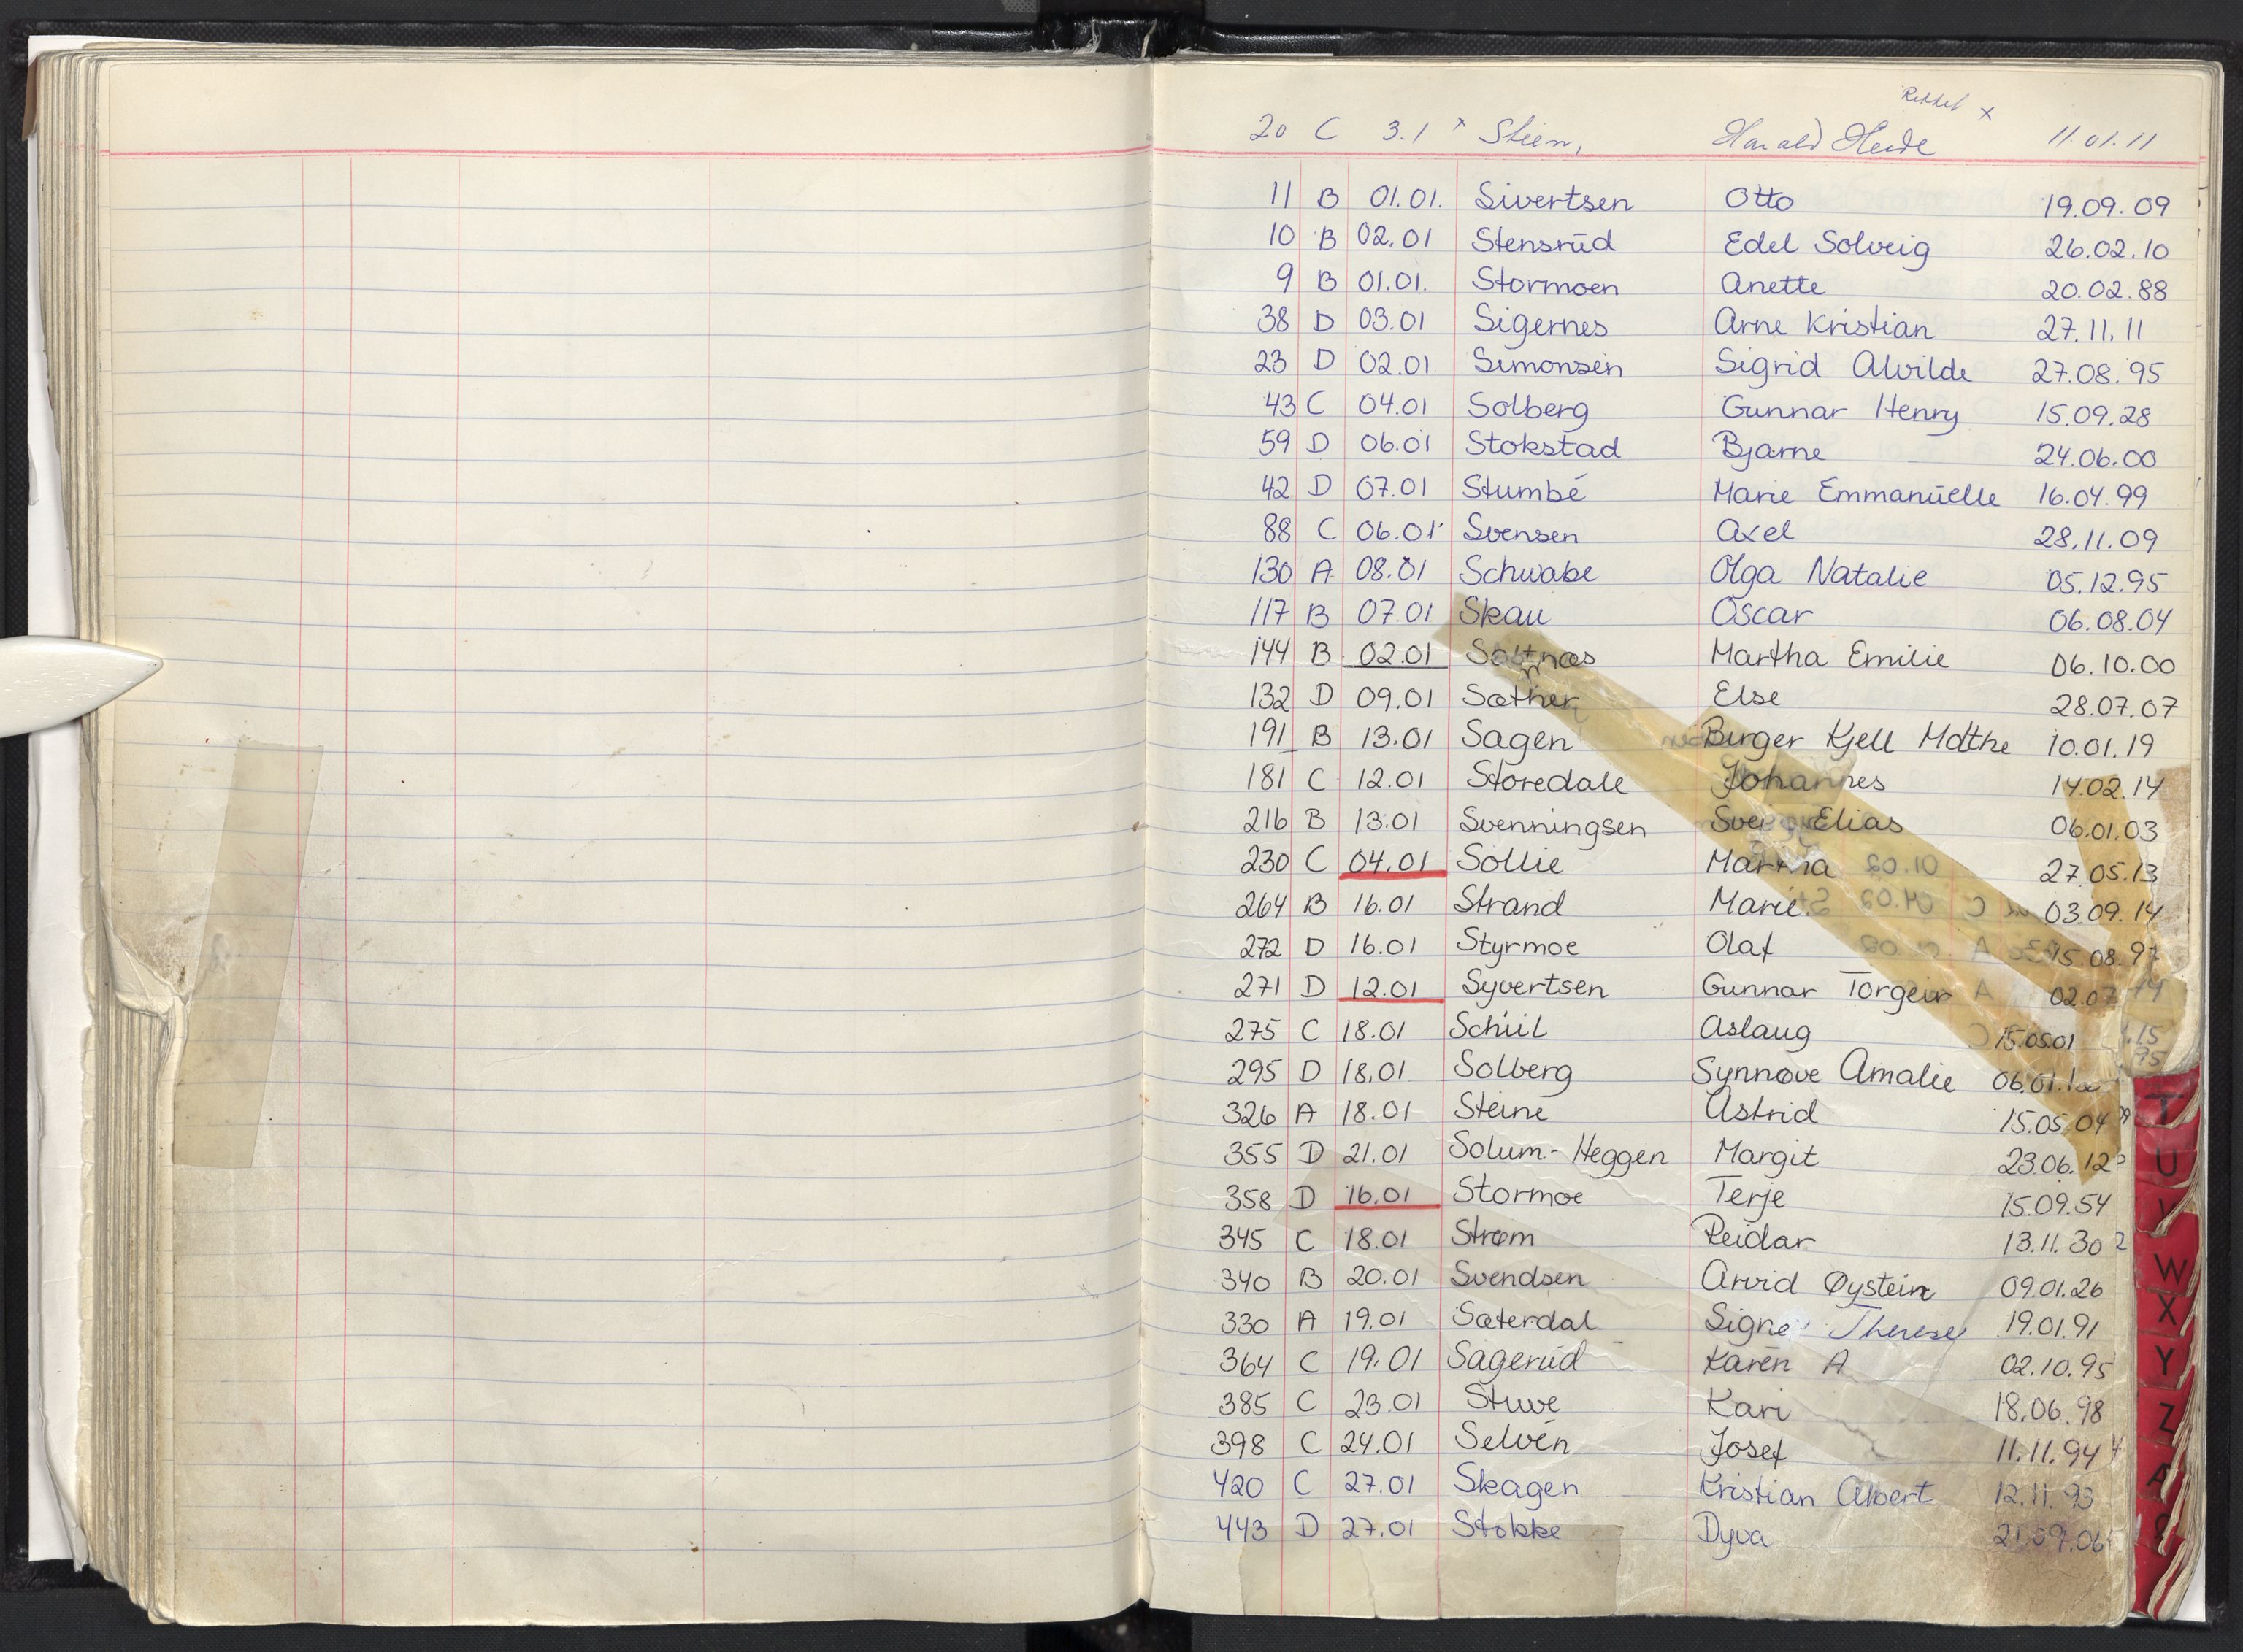 Rettet x
20 C 3.1 x Stien, Harald Heide 11.01.11
11 B 01.01. Sivertsen Otto 19.09.09
10 B 02.01 Stensrud Edel Solveig 26.02.10
9 B 01.01. Stormoen Anette 20.02.88
38 D 03.01 Sigernes Arne Kristian 27.11.11
23 D 02.01 Simonsen Sigrid Alvilde 27.08.95
43 C 04.01 Solberg Gunnar Henry 15.09.28
59 D 06.01 Stokstad Bjarne 24.06.00
42 D 07.01 Stumbé Marie Emmanuelle 16.04.99
88 C 06.01 Svensen Axel 28.11.09
130 A 08.01 Schwabe Olga Natalie 05.12.95
117 B 07.01 Skau Oscar 06.08.04
144 B 02.01 Martha Emilie 06.10.00
132 D 09.01 Sæther Else 28.07.07
191 B 13.01 Sagen Birger Kjell 10.01.19
181 C 12.01 Storedale Johannes 14.02.14
216 B 13.01 Svenningsen Elias 06.01.03
230 C 04.01 Sollie Martha 27.05.13
264 B 16.01 Strand Marie 03.09.14
272 D 16.01 Styrmoe Olaf 15.08.97
271 D 12.01 Syvertsen Gunnar Torgeir 02.07
275 C 18.01 Aslaug 15.05.01
295 D 18.01 Solberg Synnøve Amalie
326 A 18.01 Steine Astrid 15.05.04
355 D 21.01 Solum-Heggen Margit 23.06.12
358 D 16.01 Stormoe Terje 15.09.54
345 C 18.01 Strøm Reidar 13.11.30
340 B 20.01 Svendsen Arvid Øystein 09.01.26
330 A 19.01 Sæterdal Signe Therese 19.01.91
364 C 19.01 Sagerud Karen A 02.10.95
385 C 23.01 Stuve Kari 18.06.98
398 C 24.01 Selvén Josef 11.11.94
420 C 27.01 Skagen Kristian Albert 12.11.93
443 D 27.01 Stokke Dyva 21.09.06
T
U
V
W
X
Y
Z